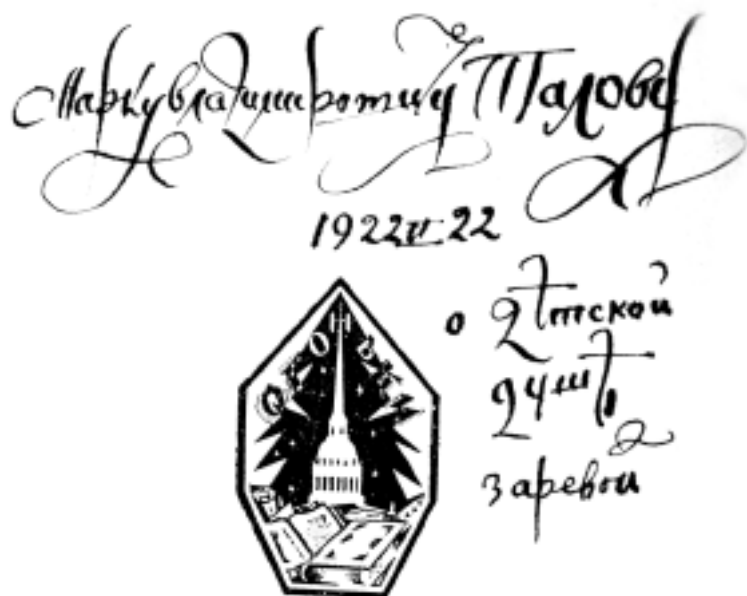 Марку владимировичу Талову
1922 II 22
о дѣтской
душѣ
заревой
ОГОНЬКИ